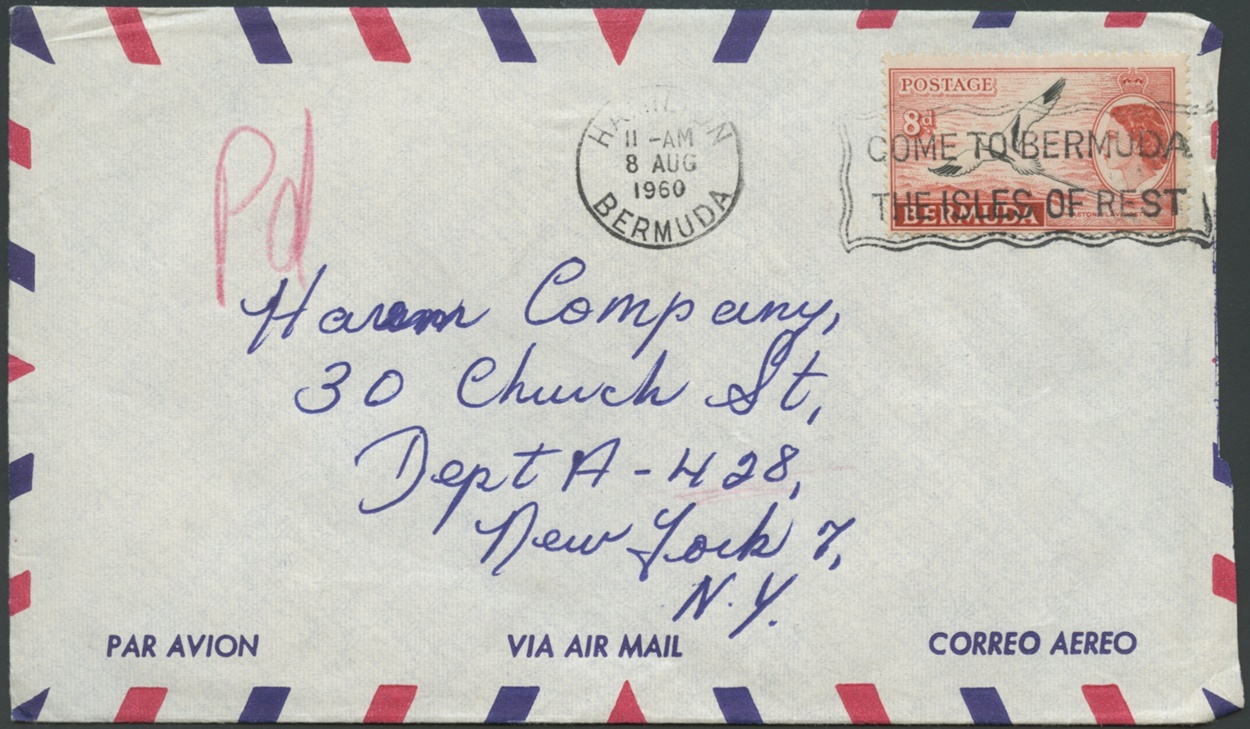 Pd
HAMILTON
11 -AM
8 AUG
1960
BERMUDA
POSTAGE
8d
COME TO BERMUDA
THE ISLES OF REST
BERMUDA
Company,
30 Church St,
Dept A-428,
New York 7,
N.Y.
PAR AVION
VIA AIR MAIL
CORREO AEREO